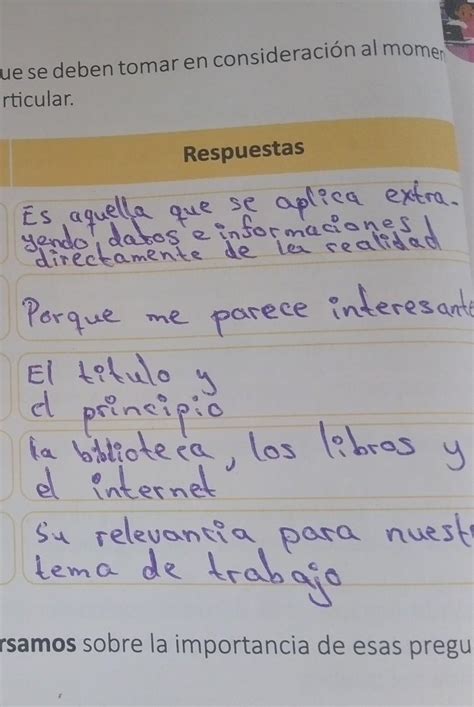 ue se deben tomar en consideración al momen
rticular.
Respuestas
Es aquella que se aplica extra-
yendo datos e informaciones
directamente de la realidad
Porque me parece interesante
El titulo y
el principio
la biblioteca, los libros y
el internet
Su relevancia para nuest
tema de trabajo
rsamos sobre la importancia de esas pregu